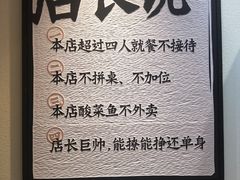 店长说
一 本店超过四人就餐不接待
二 本店不拼桌、不加位
三 本店酸菜鱼不外卖
四 店长巨帅,能撩能挣还单身